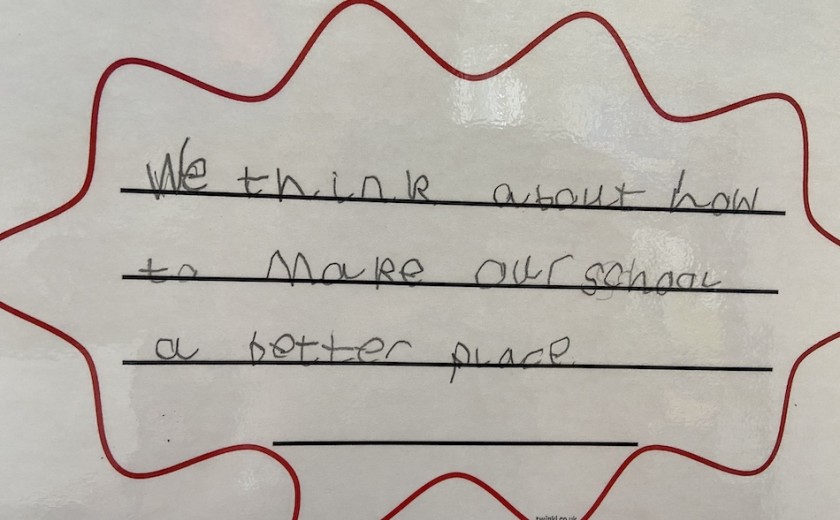 We think about how
to Make our school
a better place
twinkl.co.uk